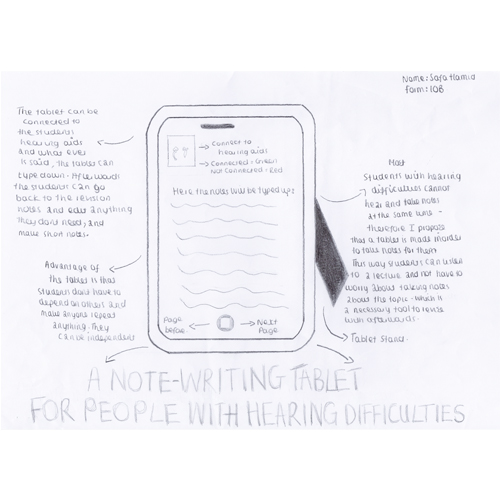 Name: Safa Hamid
Form: 10B
The tablet can be
connected to
the students
hearing aids
and what ever
is said, the tablet can
type down. Afterwards
the student can go
back to the revision
notes and edit anything
they dont need, and
make short notes.
Advantage of
the tablet is that
students dont have to
depend on others and
make anyone repeat
anything. They
can be independent
Connect to
hearing aids
Connected = Green
Not Connected = Red
Here the notes will be typed up:
Page
before
Next
Page
Most
Students with hearing
difficulties cannot
hear and take notes
at the same time -
therefore I propose
that a tablet is made inorder
to take notes for them.
This way students can listen
to a lecture and not have to
worry about taking notes
about the topic - which is
a necessary tool to revise
with afterwards.
Tablet Stand.
A NOTE-WRITING TABLET
FOR PEOPLE WITH HEARING DIFFICULTIES